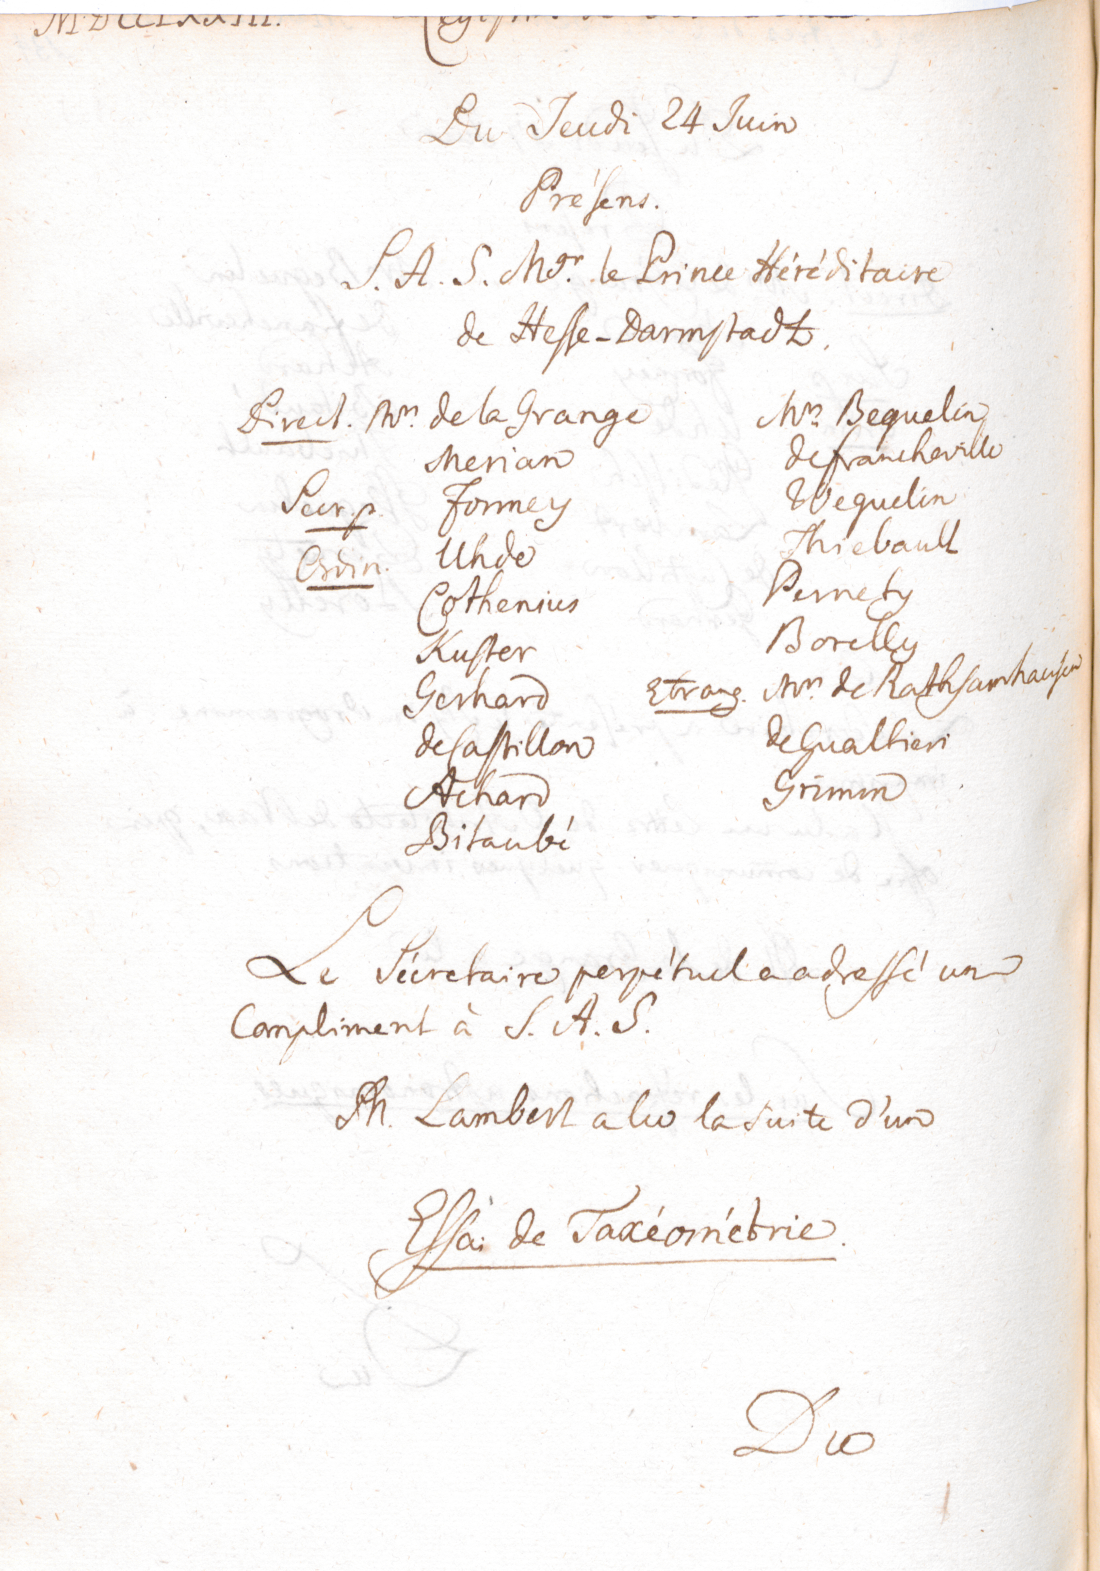 MDCCLXXIII.
Du Jeudi 24 Juin
Présens.
S. A. S. Mgr. le Prince Héréditaire
de Hesse-Darmstadt.
Direct. Mrs. de la Grange
Merian
Secr. p. Formey
Ordin. Uhde
Cothenius
Kuster
Gerhard
de Castillon
Achard
Bitaubé
Mrs. Beguelin
de Francheville
Weguelin
Thiebault
Pernety
Borelly
Etrang. Mrs. de Rathsamhausen
de Gualtieri
Grimm
Le Sécretaire perpétuel a adressé un
Compliment à S. A. S.
Mr. Lambert a lu la suite d'un
Essai de Taxéométrie.
Du